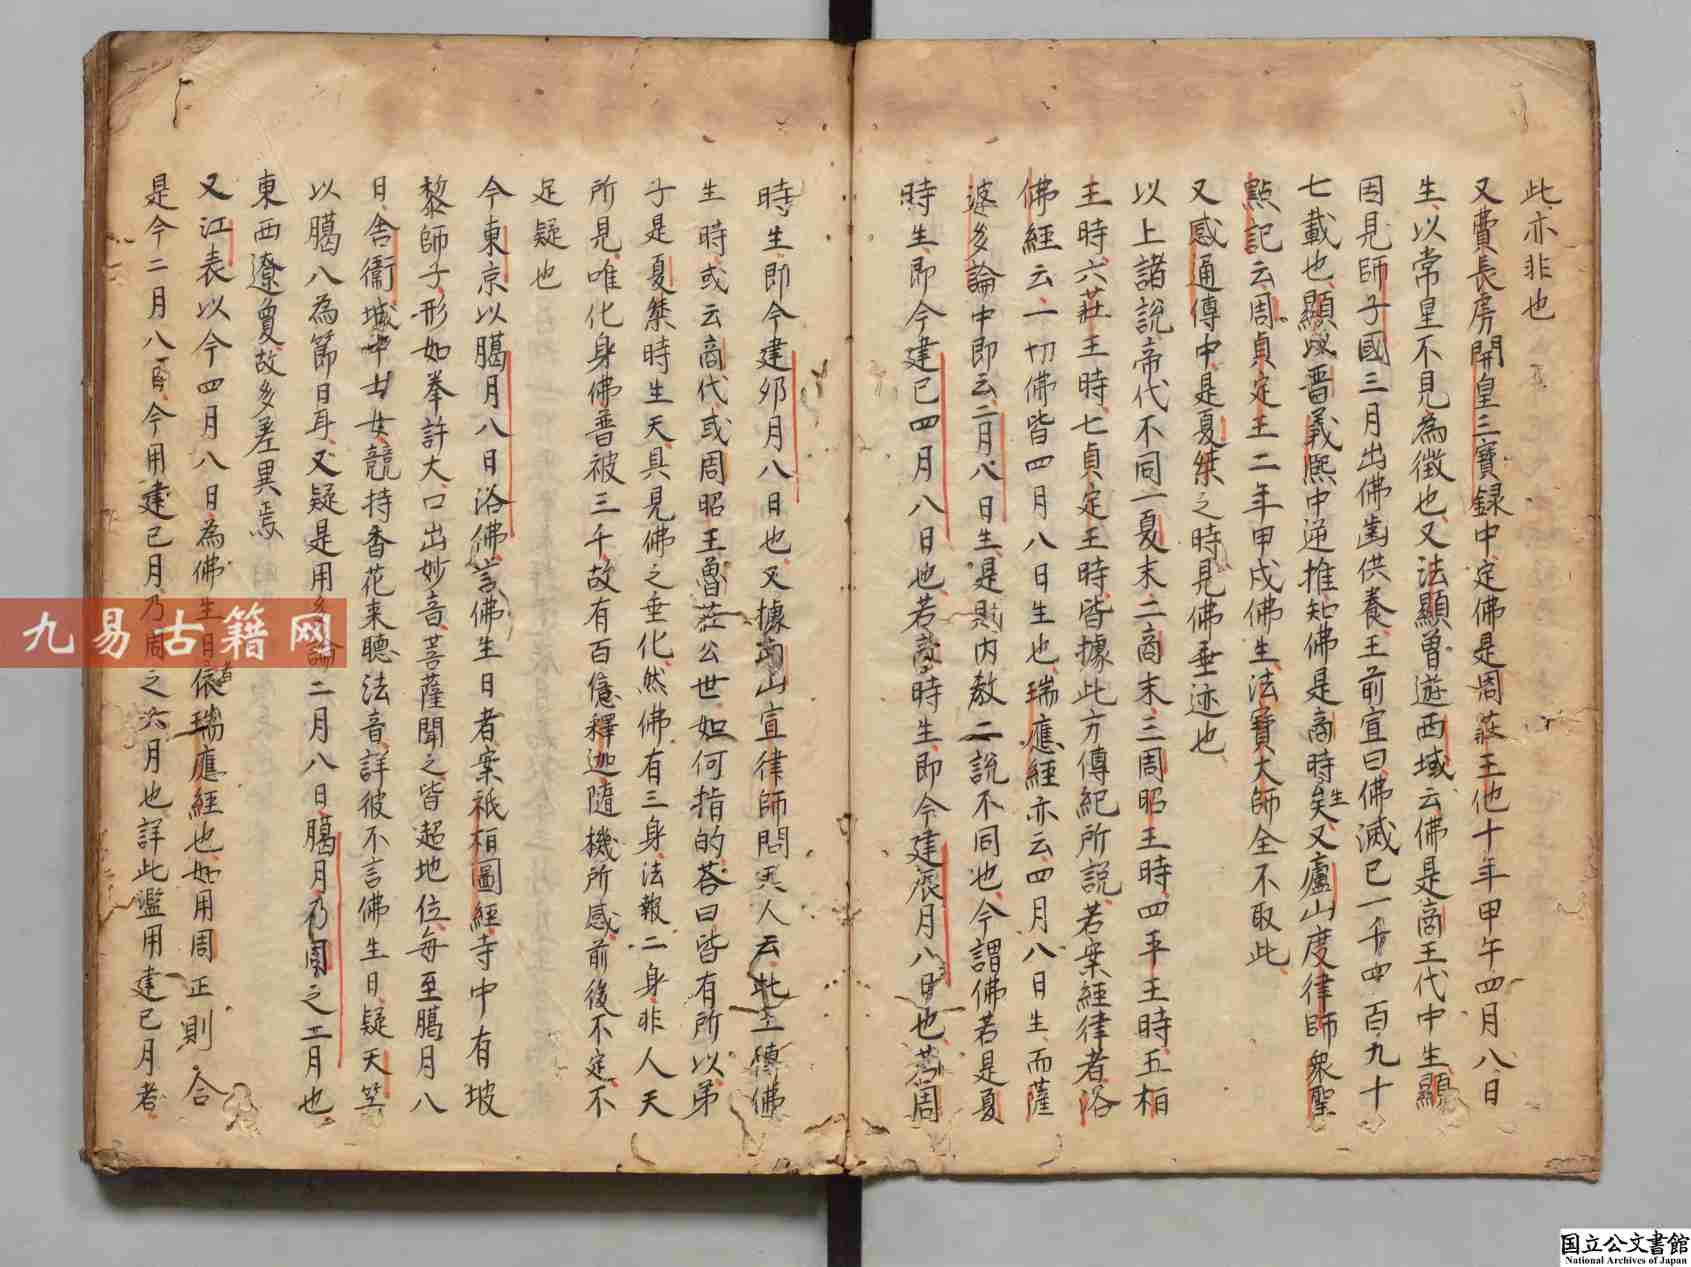 此亦非也
又費長房開皇三寶録中定佛是周莊王他十年甲午四月八日
生以常星不見為徴也又法顯曽遊西域云佛是商王代中生顯
因見師子國三月出佛齒供養王前宣曰佛滅已一千四百九十
七載也顯以晋義熙中逆推知佛是商時生矣又廬山度律師衆聖
點記云周貞定王二年甲戌佛生法寶大師全不取此
又感通傳中是夏桀之時見佛垂迹也
以上諸説帝代不同一夏末二商末三周昭王時四平王時五桓
王時六莊王時七貞定王時皆據此方傳紀所説若案經律者浴
佛經云一切佛皆四月八日生也瑞應經亦云四月八日生而薩
婆多論中即云二月八日生是則内教二説不同也今謂佛若是夏
時生即今建巳四月八日也若商時生即今建辰月八日也若周
時生即今建夘月八日也又據南山宣律師問天人云此土傳佛
生時或云商代或周昭王魯莊公世如何指的荅曰皆有所以弟
子是夏桀時生天具見佛之垂化然佛有三身法報二身非人天
所見唯化身佛普被三千故有百億釋迦隨機所感前後不定不
足疑也
今東京以臈月八日浴佛言佛生日者案祇桓圖經寺中有坡
黎師子形如拳許大口出妙音菩薩聞之皆超地位毎至臈月八
日舎衛城中士女競持香花来聽法音詳彼不言佛生日疑天竺
以臈八為節日耳又疑是用多論二月八日臈月乃周之二月也
東西遼敻故多差異焉
又江表以今四月八日為佛生日者依瑞應經也如用周正則合
是今二月八日今用建巳月乃周之六月也詳此濫用建巳月者
九易古籍网
国立公文書館
National Archives of Japan